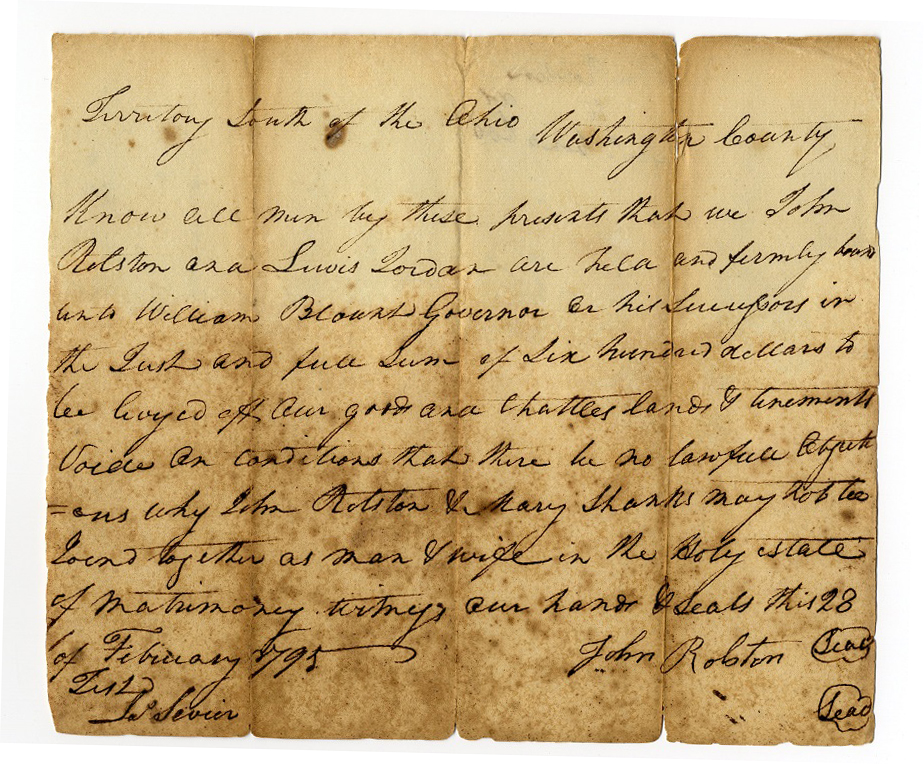 Territory South of the Ohio Washington County
Know all men by these presents that we John
Rolston and Lewis Jordan are held and firmly bound
unto William Blount Governor or his Sucessors in
the Just and full Sum of Six hundred dollars to
be levyed off Our goods and Chattles lands & tinements
Voide on conditions that there be no lawfull Objecti
=ons why John Rolston & Mary Shanks may not be
Joend together as man & wife in the Holy estate
of matrimoney witness our hands & Seals this 28
of February 1795 John Rolston Seal
Test
Ja Sevier Seal